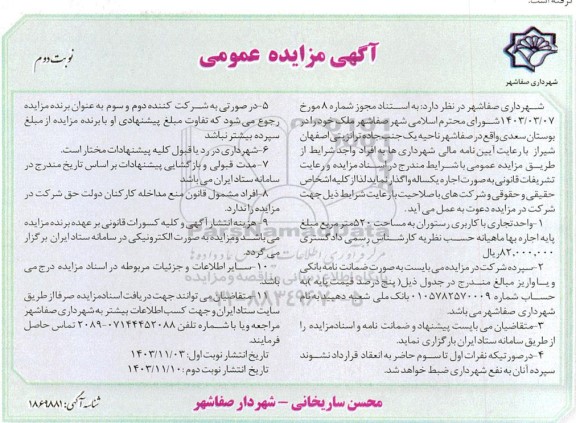 گرفته است.
آگهی مزایده عمومی
نوبت دوم
شهرداری صفاشهر
شهرداری صفاشهر در نظر دارد: به استناد مجوز شماره ۸ مورخ
۱۴۰۳/۰۳/۰۷ شورای محترم اسلامی شهر صفاشهر ملک خود را در
بوستان سعدی واقع در صفاشهر ناحیه یک جنب جاده ترانزیتی اصفهان
شیراز با رعایت آیین نامه مالی شهرداری ها به افراد واجد شرایط از
طریق مزایده عمومی با شرایط مندرج در اسناد مزایده و رعایت
تشریفات قانونی به صورت اجاره یکساله واگذار نماید لذا از کلیه اشخاص
حقیقی و حقوقی و شرکت های با صلاحیت با رعایت شرایط ذیل جهت
شرکت در مزایده دعوت به عمل می آید.
۱-واحد تجاری با کاربری رستوران به مساحت ۵۲۰ متر مربع مبلغ
پایه اجاره بها ماهیانه حسب نظریه کارشناس رسمی دادگستری
۸۲,۰۰۰,۰۰۰ریال
۲-سپرده شرکت در مزایده می بایست به صورت ضمانت نامه بانکی
و یا واریز مبالغ مندرج در جدول ذیل( پنج درصد قیمت پایه )به
حساب شماره ۰۱۰۵۷۸۲۵۷۰۰۰۹ بانک ملی شعبه دهبید به نام
شهرداری صفاشهر می باشد.
۳-متقاضیان می بایست پیشنهاد و ضمانت نامه و اسناد مزایده را
از طریق سامانه ستاد ایران بارگزاری نماید.
۴-در صورتیکه نفرات اول تا سوم حاضر به انعقاد قرارداد نشوند
سپرده آنان به نفع شهرداری ضبط خواهد شد.
۵-در صورتی به شرکت کننده دوم و سوم به عنوان برنده مزایده
رجوع می شود که تفاوت مبلغ پیشنهادی او با برنده مزایده از مبلغ
سپرده بیشتر نباشد
۶-شهرداری در رد یا قبول کلیه پیشنهادات مختار است.
۷-مدت قبولی و بازگشایی پیشنهادات بر اساس تاریخ مندرج در
سامانه ستاد ایران می باشد
۸-افراد مشمول قانون منع مداخله کارکنان دولت حق شرکت در
مزایده را ندارد.
۹- هزینه انتشار آگهی و کلیه کسورات قانونی بر عهده برنده مزایده
می باشد و مزایده به صورت الکترونیکی در سامانه ستاد ایران برگزار
می گردد.
۱۰-سایر اطلاعات و جزئیات مربوطه در اسناد مزایده درج می
باشد
متقاضیان می توانند جهت دریافت اسناد مزایده صرفا از طریق
سایت ستاد ایران و جهت کسب اطلاعات بیشتر به شهرداری صفاشهر
مراجعه و یا با شماره تلفن ۰۷۱۴۴۴۵۲۰۸۸-۲۰۸۹ تماس حاصل
فرمایند.
تاریخ انتشار نوبت اول: ۱۴۰۳/۱۱/۰۳
تاریخ انتشار نوبت دوم: ۱۴۰۳/۱۱/۱۰
محسن ساریخانی - شهردار صفاشهر
شناسه آگهی: ۱۸۶۹۸۸۱
ParsNamadData